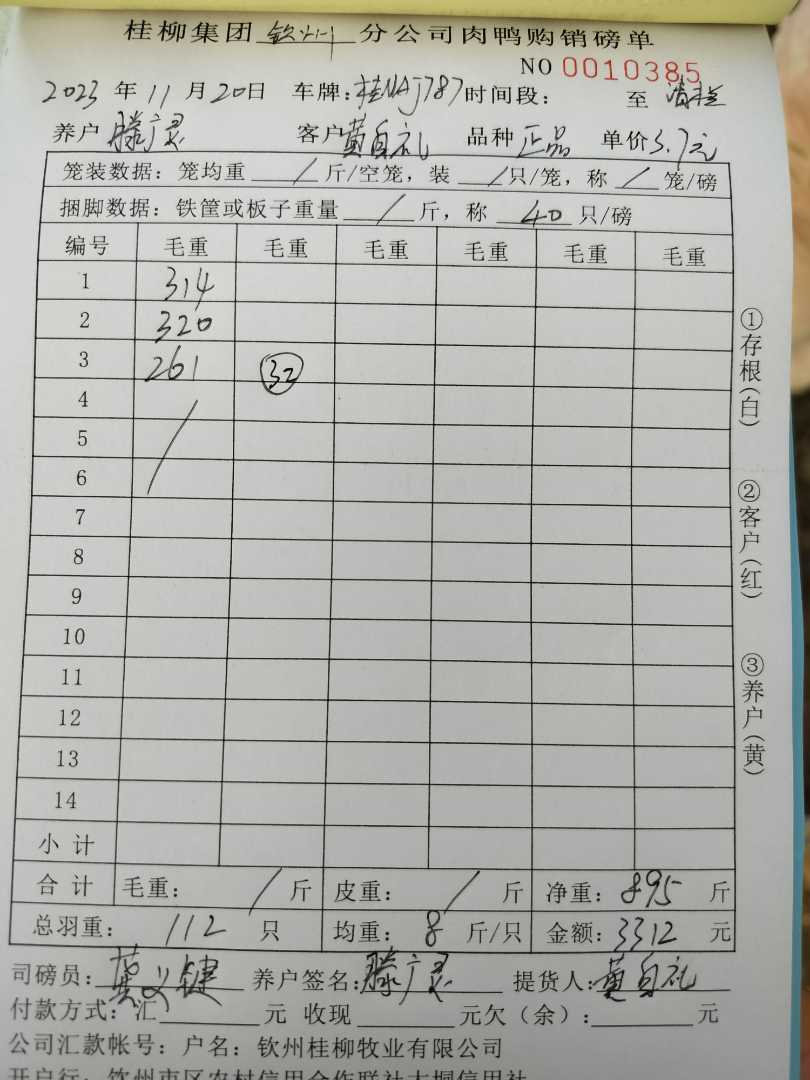 桂柳集团 钦州 分公司肉鸭购销磅单
NO 0010385
2023 年 11 月 20日 车牌: 桂NAJ787 时间段: 至 清栏
养户 滕广灵 客户 黄自礼 品种 正品 单价 3.7元
笼装数据: 笼均重 / 斤/空笼, 装 / 只/笼, 称 / 笼/磅
捆脚数据: 铁筐或板子重量 / 斤, 称 40 只/磅
编号 毛重 毛重 毛重 毛重 毛重 毛重
1 314
2 320
3 261 32
4
5
6
7
8
9
10
11
12
13
14
小计
合计 毛重: / 斤 皮重: / 斤 净重: 895 斤
总羽重: 112 只 均重: 8 斤/只 金额: 3312 元
司磅员: 莫义键 养户签名: 滕广灵 提货人: 黄自礼
付款方式: 汇 元 收现 元欠(余): 元
公司汇款帐号: 户名: 钦州桂柳牧业有限公司
开户行: 钦州市区农村信用合作联社大垌信用社
①存根(白)
②客户(红)
③养户(黄)